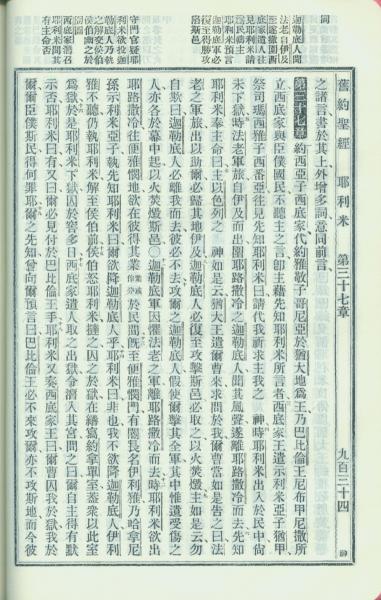 舊約聖經 耶利米 第三十七章 九百三十四
迦勒底人聞
法老自伊及
底家遣人往
見耶利米請
耶利米預言
迦勒底軍必
復至得勝攻
守門官疑耶
利米欲投迦
勒底人乃執
之解交侯伯
侯伯幽之於
西底家潛召
耶利米問其
有主命否
之諸言書於其上外增多詞意同前言
第三十七章 約西亞子西底家代約雅敬子哥尼亞於猶大地爲王乃巴比倫王尼布甲尼撒所
立西底家與臣僕國民不聽主之言卽主藉先知耶利米所言者西底家王遣示利米亞子猶甲
祭司瑪西雅子西番亞往見先知耶利米曰請代我祈求主我之 神時耶利米出入於民中尚
未下獄時法老軍旅自伊及而出圍耶路撒冷之迦勒底人聞其風聲遂離耶路撒冷而去先知
耶利米奉主命曰主以色列之 神如是云猶大王遣爾曹來求問於我爾曹當如是告之曰法
老之軍旅出以助爾必歸其地伊及迦勒底人必復至攻擊斯邑必取之以火焚燬主如是云勿
自欺曰迦勒底人必離我而去彼必不去攻爾之迦勒底人假使爾擊其全軍其中惟遺受傷之
人亦各於幕中起以火焚燬斯邑○迦勒底人軍因懼法老之軍離耶路撒冷而去時耶利米欲出
耶路撒冷往便雅憫地欲在彼得其業於民間旣至便雅憫門有閽長名伊利雅乃哈拿尼
孫示利米亞子執先知耶利米曰爾欲降迦勒底人乎耶利米曰非也我不欲降迦勒底人伊利
雅不聽仍執耶利米解至侯伯前侯伯怒耶利米撻之囚之於獄在繕寫約拿單室蓋衆以此室
爲獄於是耶利米下獄囚於窖多日西底家遣人取之出獄令潛入其宮問之曰爾自主得有默
示否耶利米曰有又曰爾必見付於巴比倫王手耶利米又奏西底家王曰爾曹囚我於獄我於
爾爾臣僕斯民得何罪耶爾之先知曾向爾預言曰巴比倫王必不來攻爾亦不攻斯地而今彼